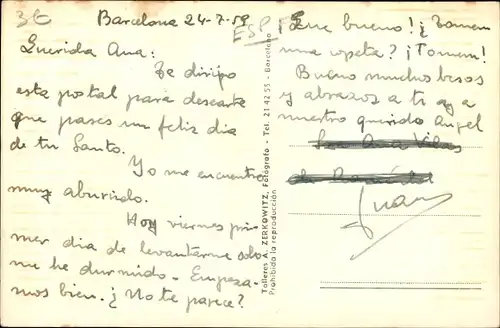 3€
Barcelona 24-7-59
ESP
Querida Ana:
Te dirijo
esta postal para desearte
que pases un feliz dia
de tu Santo.
Yo me encuentro
muy aburrido.
Hoy viernes pri-
mer dia de levantarme solo
me he dormido - Empeza-
mos bien. ¿No te parece?
¡Que bueno! ¿Tomem
una copeta? ¡Tomem!
Bueno muchos besos
y abrazos a ti y a
nuestro querido Angel
Juan
Talleres A. ZERKOWITZ, Fotógrafo - Tel. 21 42 55 - Barcelona
Prohibida la reproducción